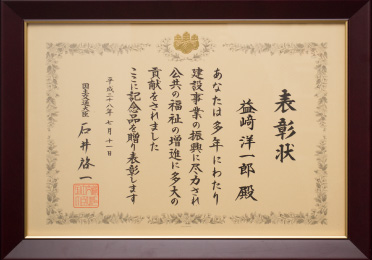 表彰状
益崎洋一郎殿
あなたは多年にわたり
建設事業の振興に尽力され
公共の福祉の増進に多大の
貢献をされました
ここに記念品を贈り表彰します
平成二十八年七月十一日
国土交通大臣 石井啓一